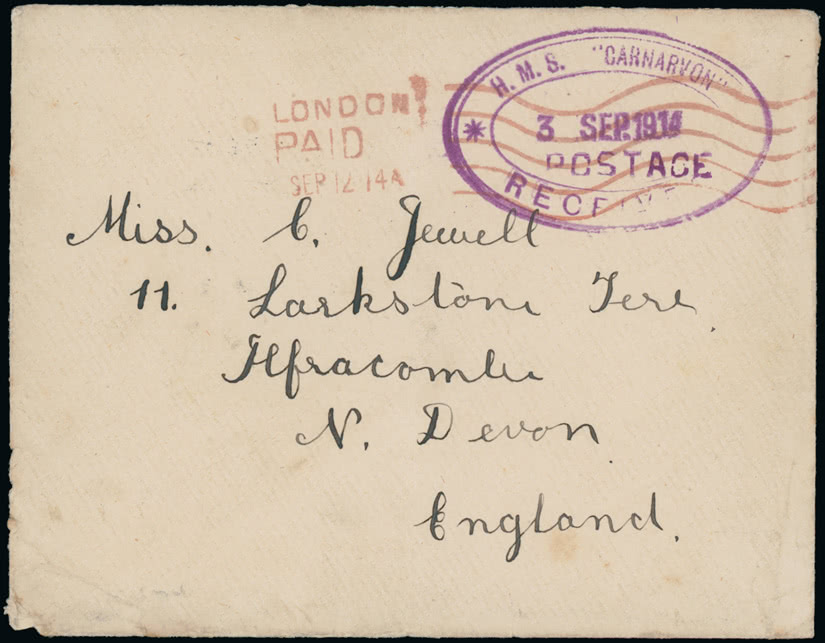 H. M. S. "CARNARVON"
3 SEP. 1914
POSTAGE
RECEIVED
LONDON
PAID
SEP 12 14A
Miss. C. Jewell
11. Larkstone Terr.
Ilfracombe
N. Devon
England.